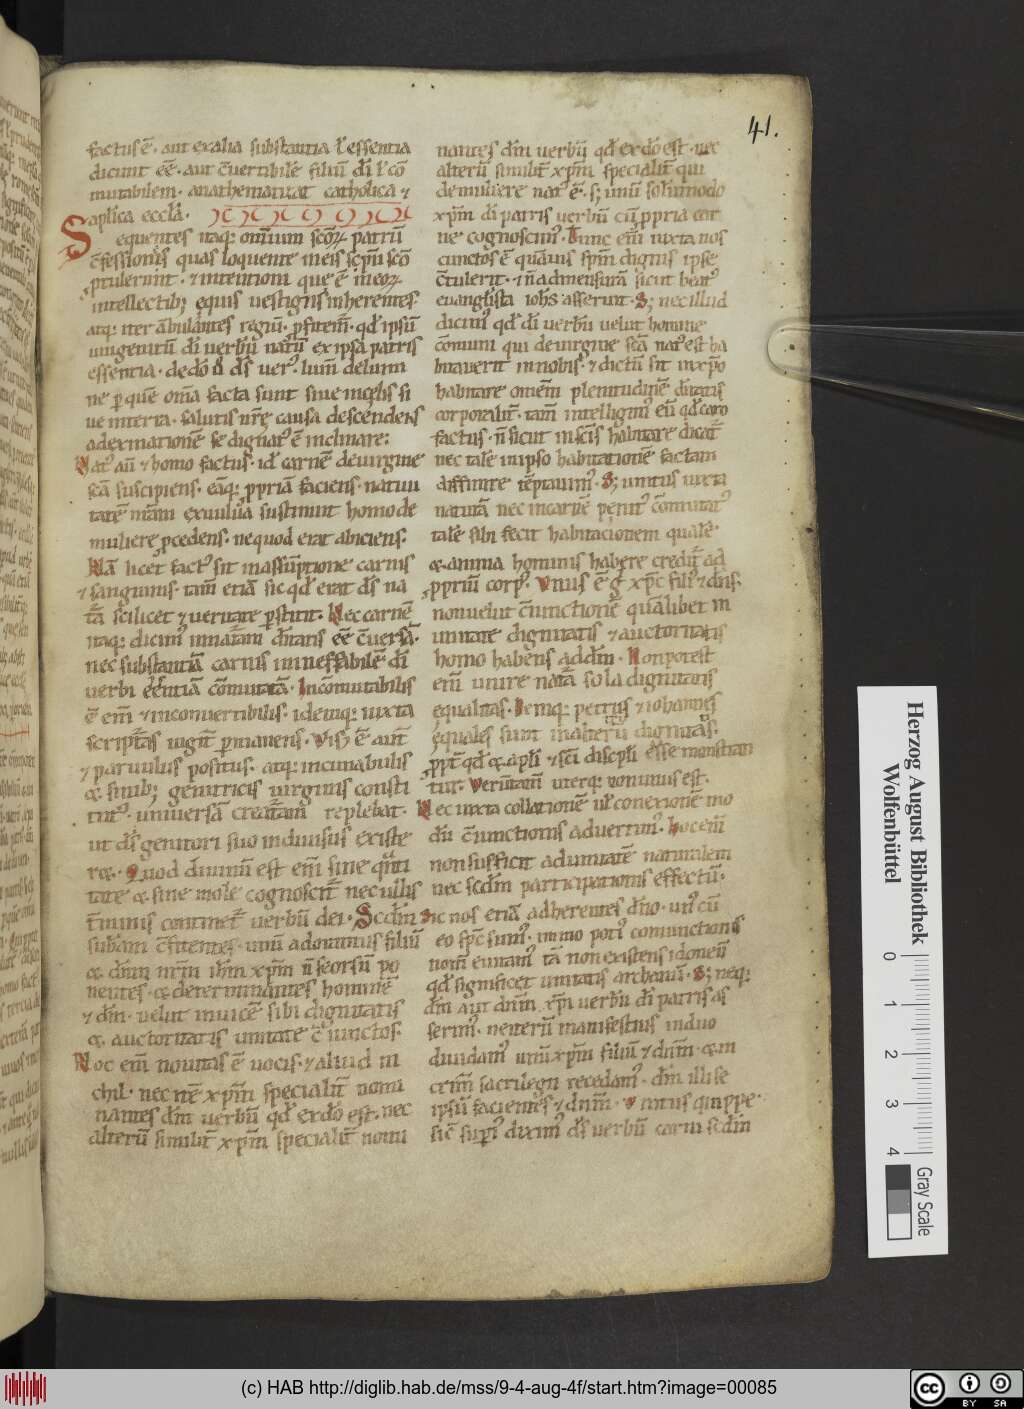 41.
factus ē · aut ex alia substantia ł essentia
dicunt eē · aut c̄uertibilē filiū dī ł cō
mutabilem · anathematizat catholica ⁊
aplica eccła ·
Sequentes itaq; omnium scōꝝ patrū
c̄fessionis quas loquente in eis sp̄u scō
ptulerunt · ⁊ intentioni que ē in eoꝝ
intellectib; equis uestigiis inherentes ·
atq; iter ābulantes regiū · ꝓfitem̄ · qd̓ ipsū
unigenitū dī uerbū natū ex ipsa patris
essentia · de dō ds̄ uer᷒ · lum̄ de lumi
ne ꝑ quē om̄ia facta sunt siue in celis si
ue in terra · salutis nr̄ę causa descendens
ad exinanitionē se dignat᷒ ē inclinare;
Nat᷒ aū ⁊ homo factus · id ē carnē de uirgine
scā suscipiens · eāq; ꝓpriā faciens · natiui
tatē
muliere ꝓcedens · ne quod erat abiciens;
Nā licet fact᷒ sit in assūptione carnis
⁊ sanguinis · tam̄ etiā sic qd̓ erat ds̄ na
tā scilicet ⁊ ueritate ꝑstitit · Nec carnē
itaq; dicim᷒ in natam dītatis eē c̄uersā ·
nec substantiā carnis in ineffabilē dī
uerbi eēntiā cōmutatā · Incōmutabilis
ē em̄ ⁊ inconuertibilis · idemq; iuxta
scriptas iugit̄ ꝑmanens · Vis; ē aūt
⁊ paruulus positus · atq; in cunabulis
⁊ sinib; genitricis uirginis consti
tut᷒ · uniuersā creatam replebat ·
ut ds̄ genitori suo indiuisus existe
ret · Quod diuinū est em̄ sine qn̄ti
tate ⁊ sine mole cognoscit̄ nec ullis
t̄minis continet̄ uerbū dei · Scdm̄
subam c̄fitentes · unū adoramus filiū
⁊ dn̄m nr̄m ih̄m xp̄m n̄ seorsū po
nentes · ⁊ determinantes hominē
⁊ dm̄ · uelut inuicē sibi dignitatis
⁊ auctoritatis unitate c̄iunctos ·
Hoc em̄ nouitas ē uocis · ⁊ aliud ni
chil · nec itē xp̄m specialit̄ nomi
nantes dm̄ uerbū qd̓ ex dō est · nec
alterū similit̄ xp̄m specialit̄ nomi
nantes dm̄ uerbū qd̓ ex dō est · nec
alterū similit̄ xp̄m specialit̄ qui
de muliere nat᷒ ē · s; unū solummodo
xp̄m dī patris uerbū cū ꝓpria car
ne cognoscim᷒ · Tunc em̄ iuxta nos
cunctos ē quāuis sp̄m dignis ipse
c̄tulerit · ⁊ n̄ ad mensurā sicut beat᷒
euanglista ioh̄s asserunt · S; nec illud
dicim᷒ qd̓ dī uerbū uelut homine
cōmuni qui de uirgine scā nat᷒ est ha
bitauerit in nobis · ⁊ dictū sit in xp̄o
habitare omēm plenitudinē diuitatis
corporalit̄ · tam̄ intelligim᷒ eū qd̓ caro
factus · n̄ sicut in scīs habitare dicat̄
nec talē in ipso habitationē factam
diffinire tēptauim᷒ · S; unitus iuxta
naturā nec in carnē penit᷒ cōmutat᷒
talē sibi fecit habitacionem qualē ·
⁊ anima hominis habere credit̄ ad
ꝓpriū corp᷒ · Vnus ē g̊ xp̄c fili᷒ ⁊ dn̄s;
non uelut c̄iunctionē quālibet in
unitate dignitatis ⁊ auctoritatis
homo habens ad dm̄ · Non potest
em̄ unire natā sola dignitatis
equalitas · Deniq; petrus ⁊ iohannes
equales sunt in alterū dignitas ·
ꝓpt̄ qd̓ ⁊ apli ⁊ scī discipli esse monstran
tur · Verūtam̄ uterq; non unus est ·
Nec iuxta collationē uł conexionē mo
dū c̄iunctionis aduertim᷒ · hoc em̄
non sufficit ad unitatē naturalem
nec scdm̄ participationis effectū ·
Sic nos etiā adherentes dn̄o · un᷒ cū
eo sp̄c sum᷒ · immo poti᷒ coniunctionis
nom̄ euitam᷒ tā non existens idoneū
qd̓ significet unitatis archanū · S; neq;
dm̄ aut dn̄m xp̄i uerbū dī patris as
serim᷒ · ne iterū manifestius in duo
diuidam᷒ unū xp̄m filiū ⁊ dn̄m · ⁊ in
crim̄ sacrilegii recedam᷒ · dm̄ illi se
ipsū facientes ⁊ dn̄m · Vnitus quippe ·
sic̄ supi᷒ dixim᷒ ds̄ uerbū carni scdm̄
Herzog August Bibliothek
Wolfenbüttel
0 1 2 3 4
Gray Scale
(c) HAB http://diglib.hab.de/mss/9-4-aug-4f/start.htm?image=00085
cc BY SA